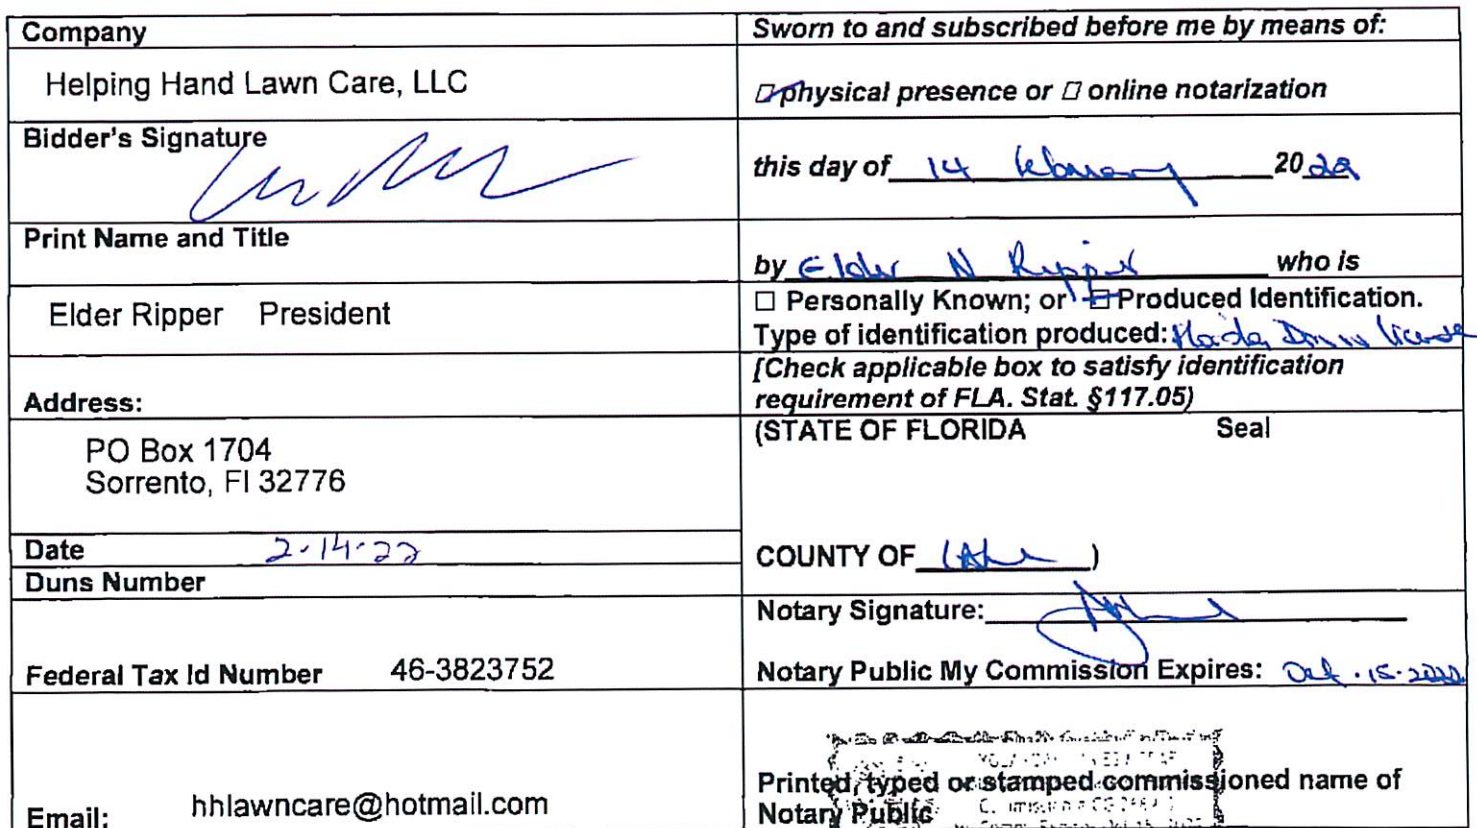 Company
Helping Hand Lawn Care, LLC
Bidder's Signature
Print Name and Title
Elder Ripper President
Address:
PO Box 1704
Sorrento, Fl 32776
Date 2-14-22
Duns Number
Federal Tax Id Number 46-3823752
Email: hhlawncare@hotmail.com
Sworn to and subscribed before me by means of:
physical presence or ☐ online notarization
this day of 14 February 2022
by Elder N Ripper who is
☐ Personally Known; or ☐ Produced Identification.
Type of identification produced: Florida Driver License
[Check applicable box to satisfy identification
requirement of FLA. Stat. §117.05)
(STATE OF FLORIDA Seal
COUNTY OF Lake )
Notary Signature:
Notary Public My Commission Expires: Oct. 15. 2022
Printed, typed or stamped commissioned name of
Notary Public